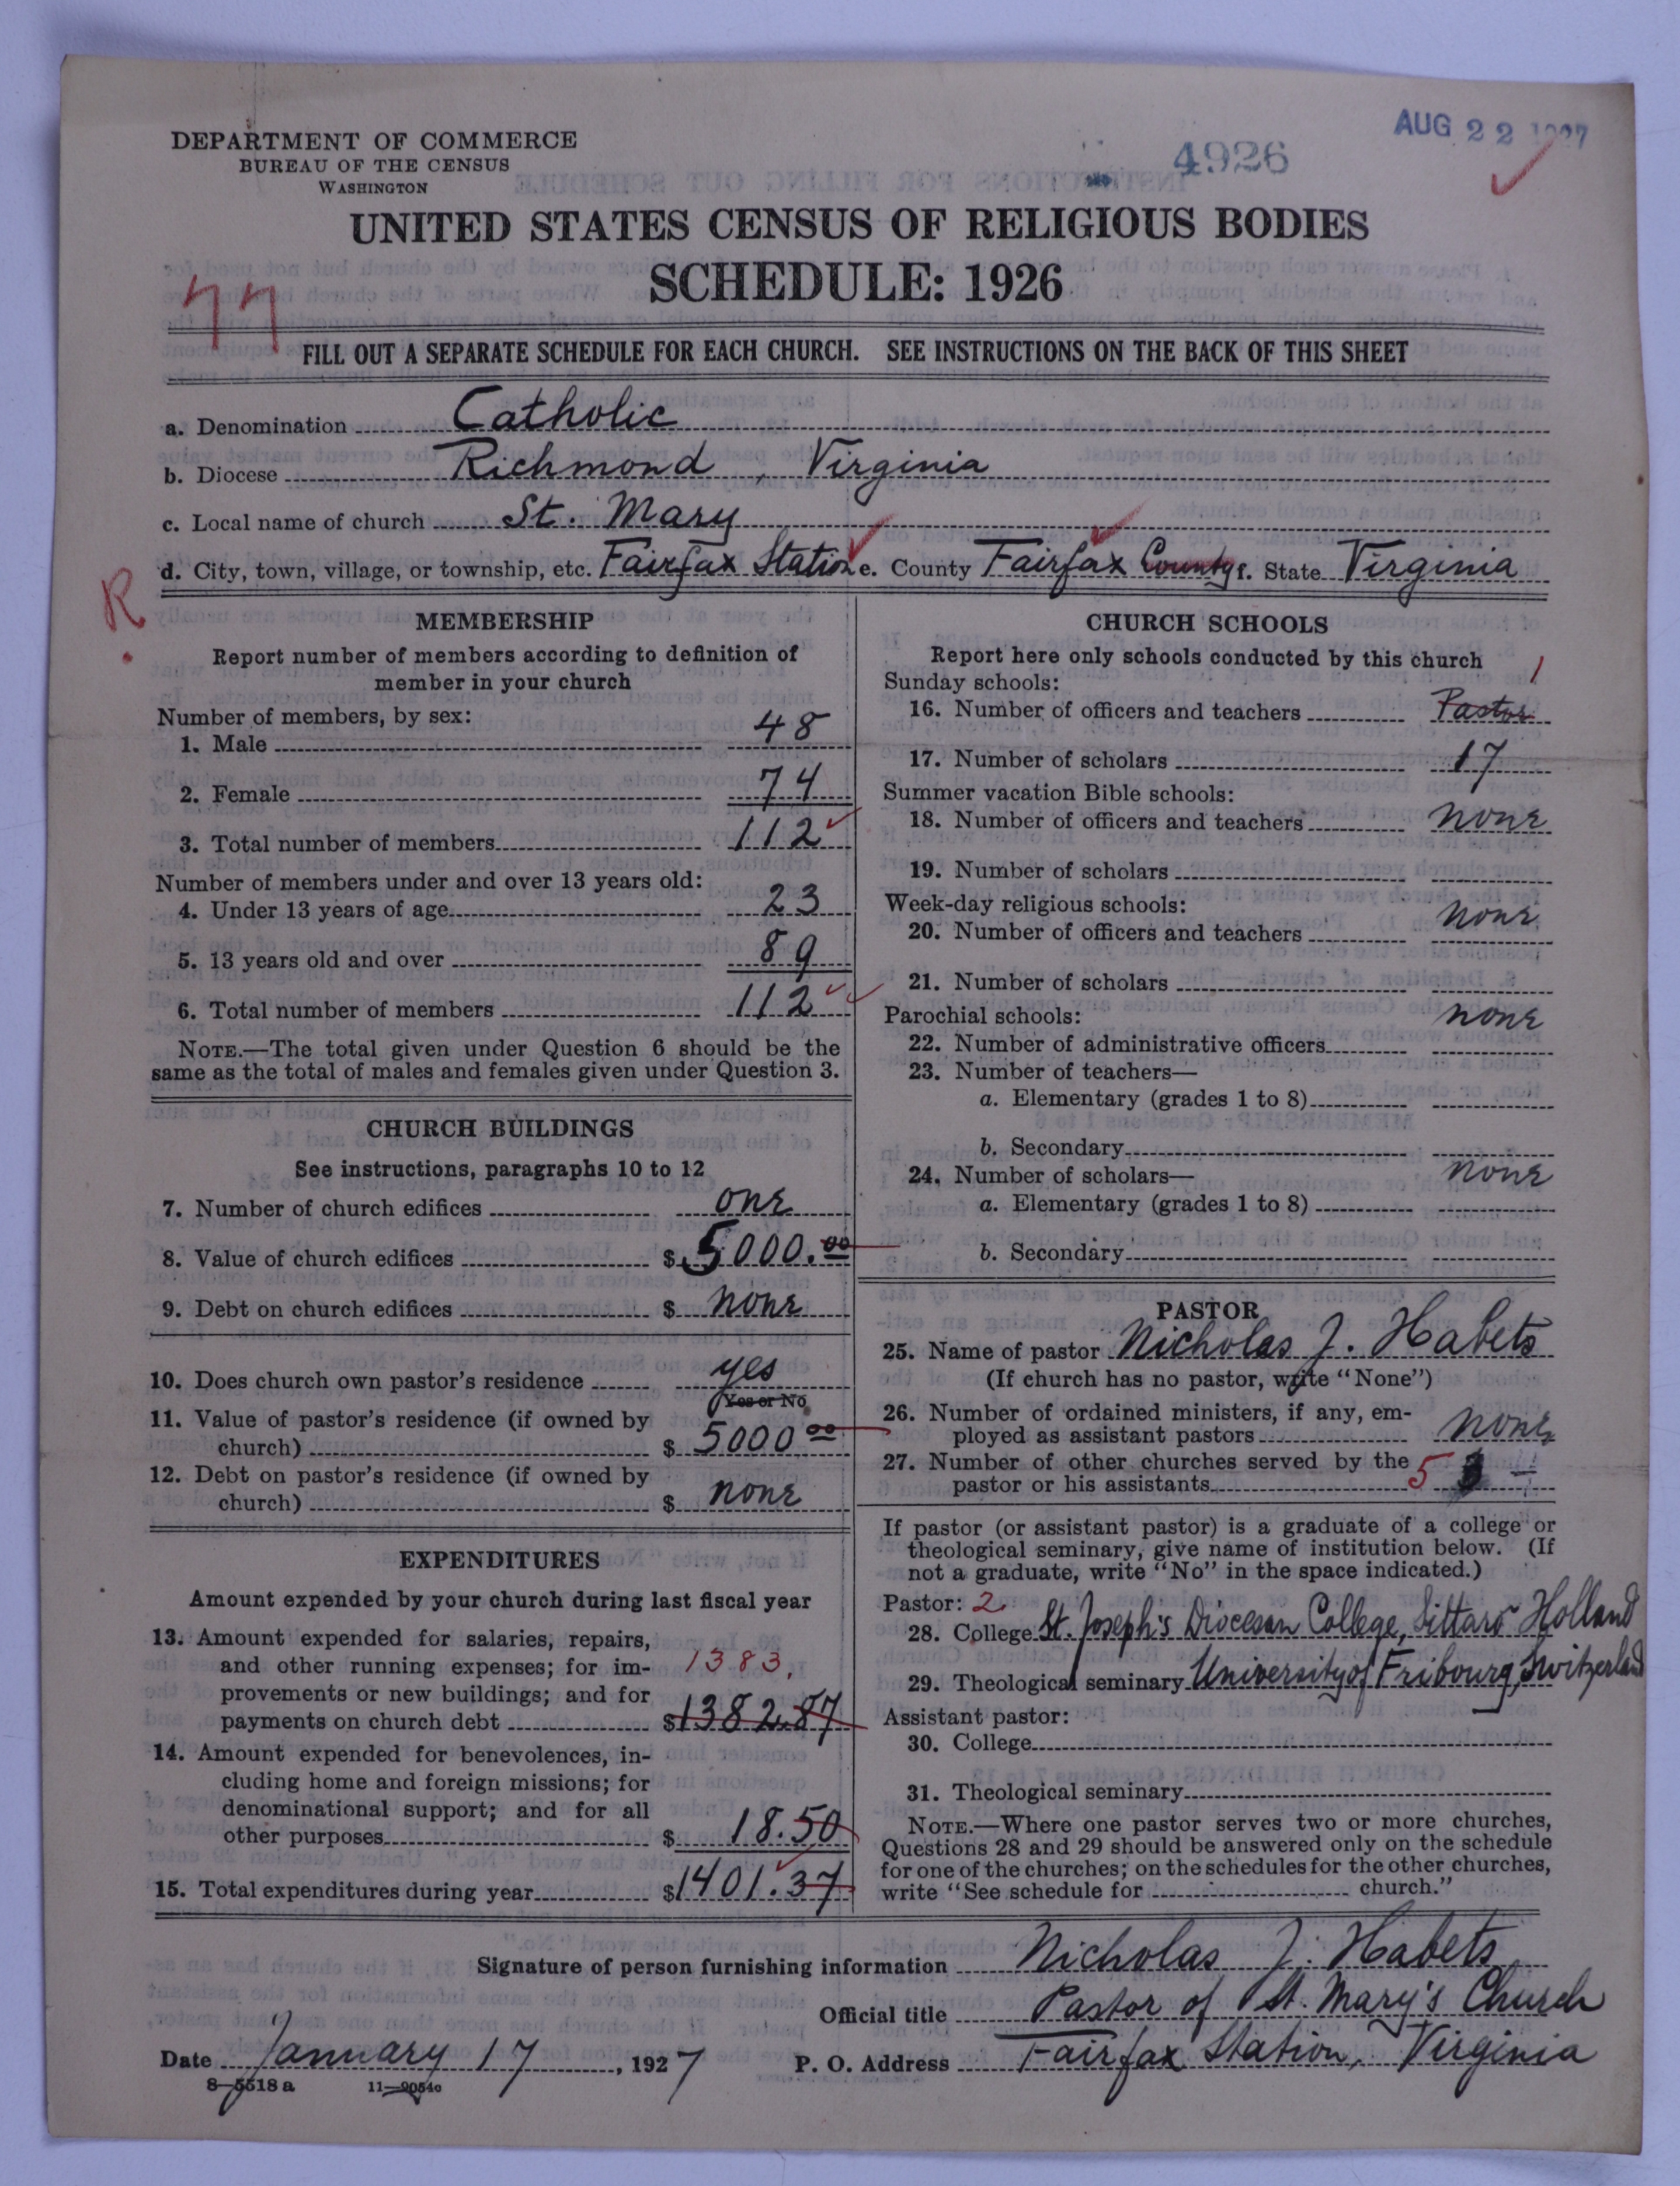 DEPARTMENT OF COMMERCE
BUREAU OF THE CENSUS
WASHINGTON
4926
AUG 22 1927
UNITED STATES CENSUS OF RELIGIOUS BODIES
SCHEDULE: 1926
77
FILL OUT A SEPARATE SCHEDULE FOR EACH CHURCH. SEE INSTRUCTIONS ON THE BACK OF THIS SHEET
a. Denomination Catholic
b. Diocese Richmond, Virginia
c. Local name of church St. Mary
d. City, town, village, or township, etc. Fairfax Station e. County Fairfax County f. State Virginia
R.
MEMBERSHIP
Report number of members according to definition of
member in your church
Number of members, by sex:
1. Male 48
2. Female 74
3. Total number of members 112
Number of members under and over 13 years old:
4. Under 13 years of age 23
5. 13 years old and over 89
6. Total number of members 112
NOTE.—The total given under Question 6 should be the
same as the total of males and females given under Question 3.
CHURCH BUILDINGS
See instructions, paragraphs 10 to 12
7. Number of church edifices one
8. Value of church edifices $ 5000.00
9. Debt on church edifices $ none
10. Does church own pastor's residence yes
Yes or No
11. Value of pastor's residence (if owned by
church) $ 5000 00
12. Debt on pastor's residence (if owned by
church) $ none
EXPENDITURES
Amount expended by your church during last fiscal year
13. Amount expended for salaries, repairs,
and other running expenses; for im- 1383.
provements or new buildings; and for
payments on church debt $1382.87
14. Amount expended for benevolences, in-
cluding home and foreign missions; for
denominational support; and for all
other purposes $ 18.50
15. Total expenditures during year $1401.37
CHURCH SCHOOLS
Report here only schools conducted by this church
Sunday schools: 1
16. Number of officers and teachers Pastor
17. Number of scholars 17
Summer vacation Bible schools:
18. Number of officers and teachers none
19. Number of scholars
Week-day religious schools:
20. Number of officers and teachers none
21. Number of scholars
Parochial schools: none
22. Number of administrative officers
23. Number of teachers—
a. Elementary (grades 1 to 8)
b. Secondary
24. Number of scholars— none
a. Elementary (grades 1 to 8)
b. Secondary
PASTOR
25. Name of pastor Nicholas J. Habets
(If church has no pastor, write "None")
26. Number of ordained ministers, if any, em-
ployed as assistant pastors none
27. Number of other churches served by the
pastor or his assistants 5
If pastor (or assistant pastor) is a graduate of a college or
theological seminary, give name of institution below. (If
not a graduate, write "No" in the space indicated.)
Pastor: 2
28. College St. Joseph's Diocesan College, Sittard Holland
29. Theological seminary University of Fribourg, Switzerland
Assistant pastor:
30. College
31. Theological seminary
NOTE.—Where one pastor serves two or more churches,
Questions 28 and 29 should be answered only on the schedule
for one of the churches; on the schedules for the other churches,
write "See schedule for church."
Signature of person furnishing information Nicholas J. Habets
Official title Pastor of St. Mary's Church
Date January 17, 1927 P. O. Address Fairfax Station, Virginia
8—5518 a 11—9054c